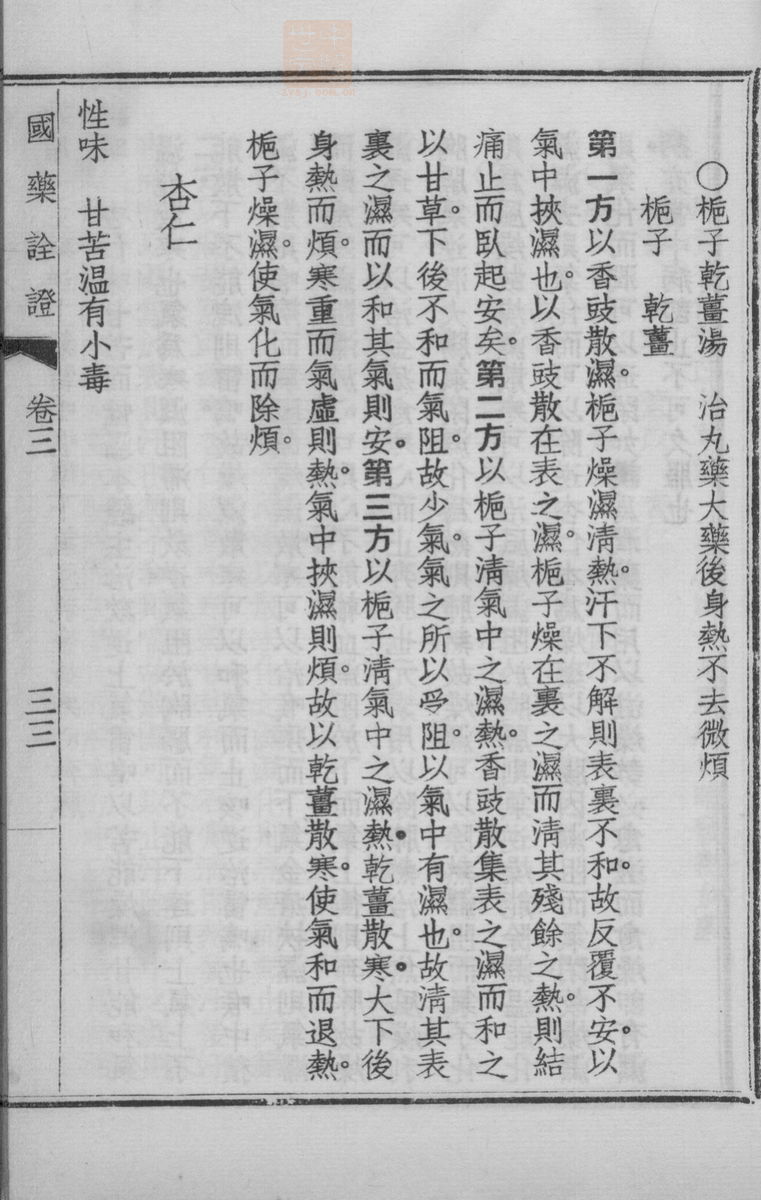 〇梔子乾薑湯　治丸藥大藥後身熱不去微煩
梔子　乾薑
第一方以香豉散濕。梔子燥濕清熱。汗下不解則表裏不和。故反覆不安。以
氣中挾濕也。以香豉散在表之濕。梔子燥在裏之濕而清其殘餘之熱。則結
痛止而臥起安矣。第二方以梔子清氣中之濕熱。香豉散集表之濕而和之
以甘草。下後不和而氣阻。故少氣。氣之所以受阻。以氣中有濕也。故清其表
裏之濕而以和其氣則安。第三方以梔子清氣中之濕熱。乾薑散寒。大下後
身熱而煩。寒重而氣虛則熱。氣中挾濕則煩。故以乾薑散寒。使氣和而退熱。
梔子燥濕。使氣化而除煩。
杏仁
性味　甘苦溫有小毒
國藥詮證　卷三　三三